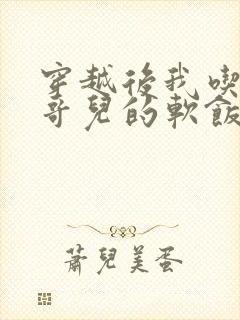 穿越後我喫
哥兒的軟飯
蕭兒美蛋